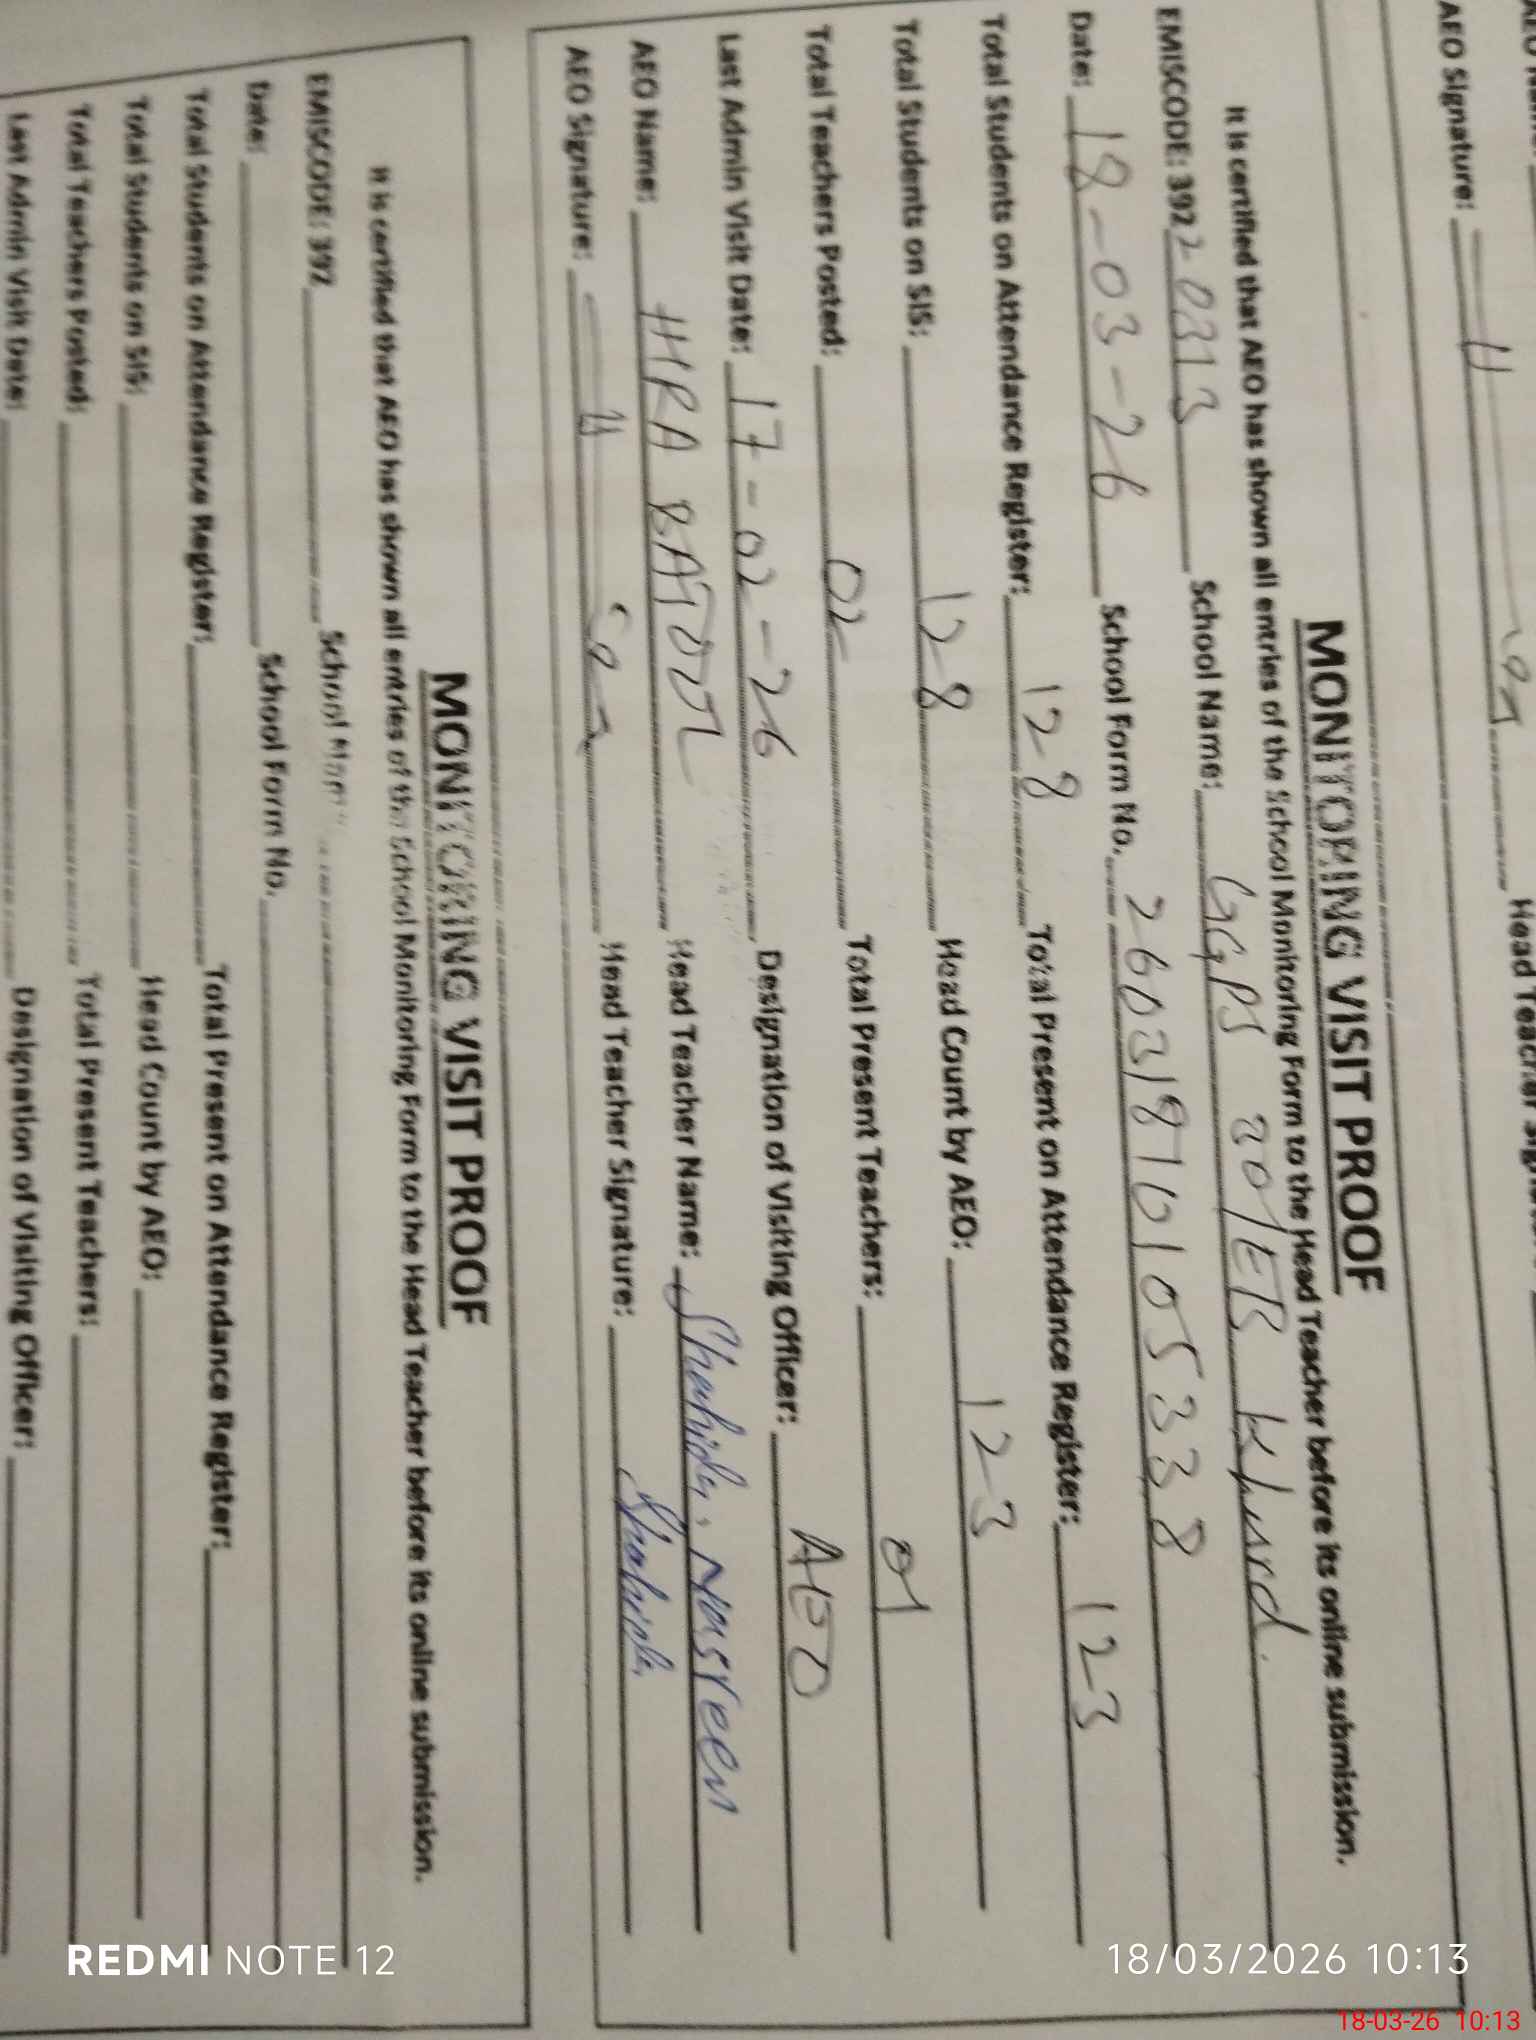 AEO Signature: Head Teacher
MONITORING VISIT PROOF
It is certified that AEO has shown all entries of the School Monitoring Form to the Head Teacher before its online submission.
EMISCODE: 39220313 School Name: GGPS 20/EB Khurd.
Date: 18-03-26 School Form No. 2603187010105338
Total Students on Attendance Register: 128 Total Present on Attendance Register: 123
Total Students on SIS: 128 Head Count by AEO: 123
Total Teachers Posted: 02 Total Present Teachers: 01
Last Admin Visit Date: 17-02-26 Designation of Visiting Officer: AEO
AEO Name: HIRA BATOOL Head Teacher Name: Shahida Nasreen
AEO Signature: Head Teacher Signature: Shahida
MONITORING VISIT PROOF
It is certified that AEO has shown all entries of the School Monitoring Form to the Head Teacher before its online submission.
EMISCODE: 392 School
Date: School Form No.
Total Students on Attendance Register: Total Present on Attendance Register:
Total Students on SIS: Head Count by AEO:
Total Teachers Posted: Total Present Teachers:
Last Admin Visit Date: Designation of Visiting Officer:
REDMI NOTE 12
18/03/2026 10:13
18-03-26 10:13